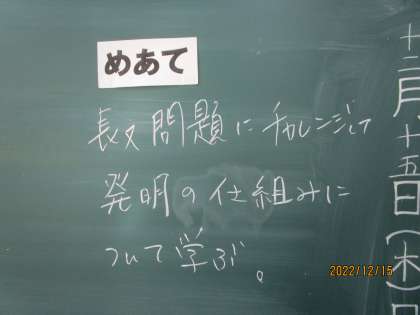 めあて
長文問題にチャレンジして
発明の仕組みに
ついて学ぶ。
十二月十五日(木)日
2022/12/15